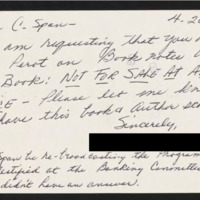 C-Span-
4-20
am requesting that you
Perot on Book notes
Book: NOT FOR SALE AT A
E - Please let me kno
have this book & Author sc
Sincerely,
Span be re-broadcasting the Program
estified at the Banking Committe
didn't have an answer.